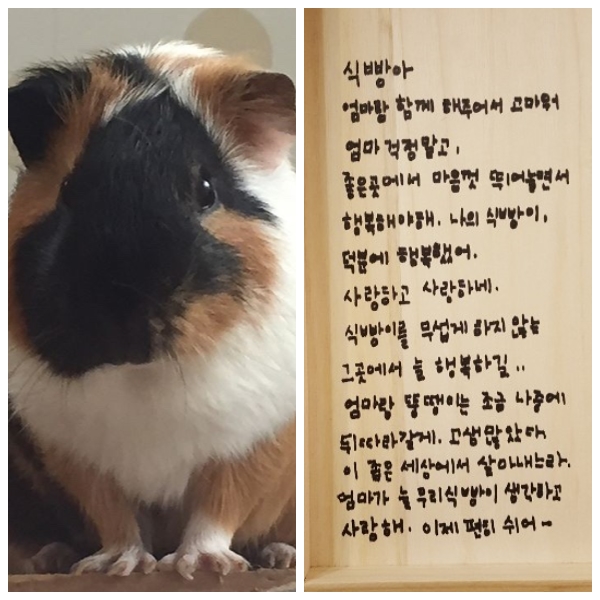 식빵아
엄마랑 함께 해주어서 고마워
엄마 걱정말고,
좋은곳에서 마음껏 뛰어놀면서
행복해야해. 나의 식빵이,
덕분에 행복했어.
사랑하고 사랑하네.
식빵이를 무섭게 하지 않는
그곳에서 늘 행복하길..
엄마랑 뚱땡이는 조금 나중에
뒤따라갈게. 고생많았다
이 좁은 세상에서 살아내느라.
엄마가 늘 우리식빵이 생각하고
사랑해. 이제 편히 쉬어~